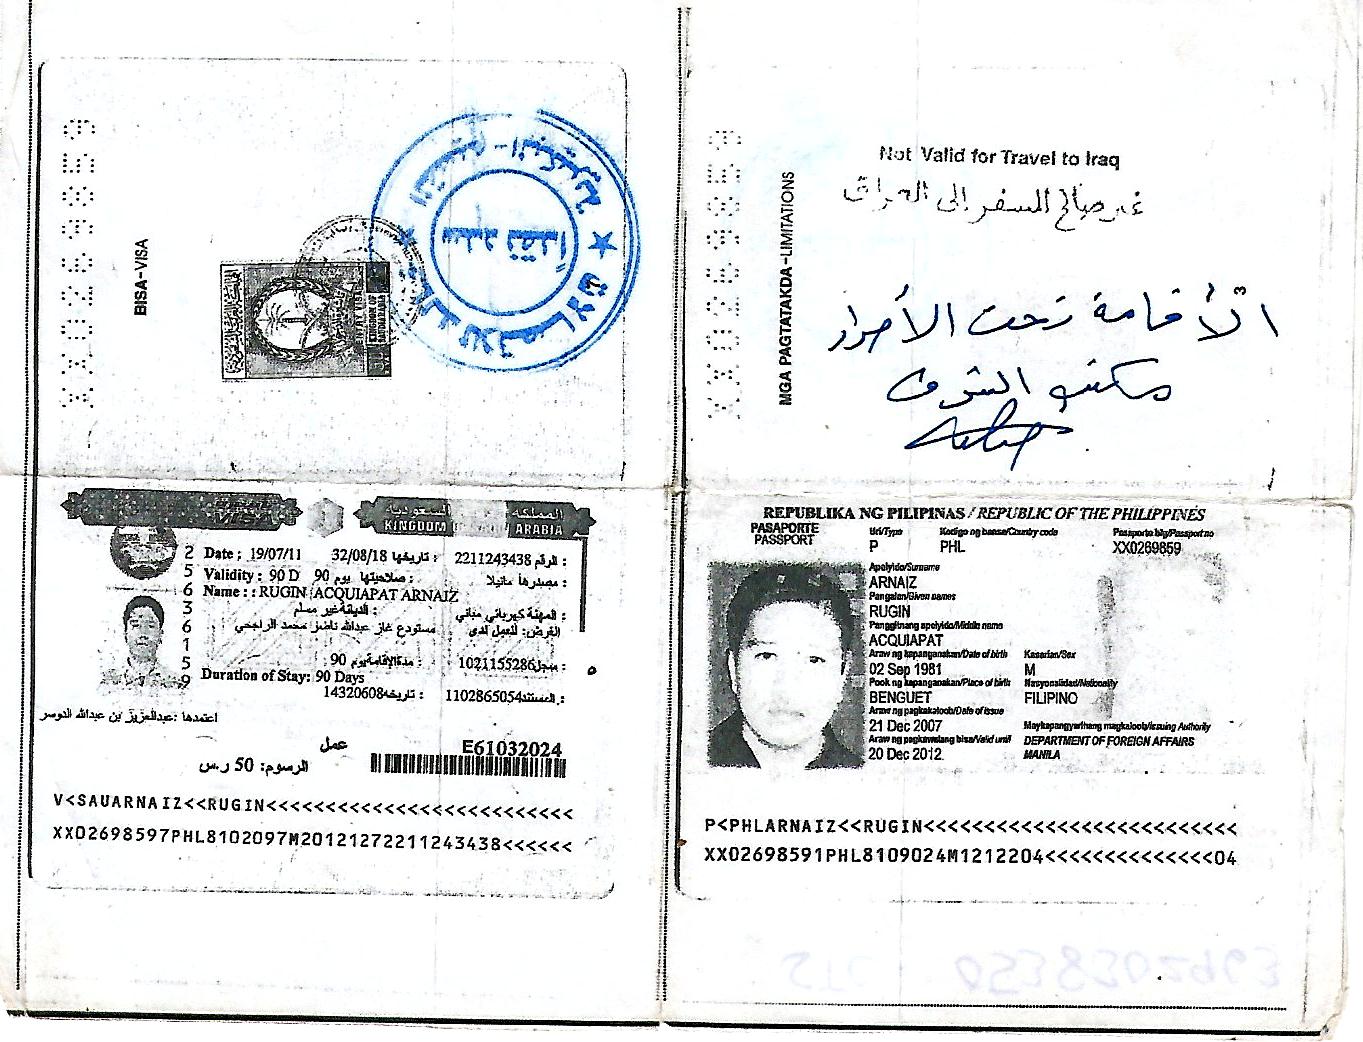 XX0269859
BISA-VISA
VISA
المملكة
السعودية
KINGDOM
ARABIA
Date ; 19/07/11
32/08/18 : تاريخها
2211243438 : الرقم
Validity : 90 D
صلاحيتها : يوم 90
مصدرها مانيلا :
Name : : RUGIN ACQUIAPAT ARNAIZ
الديانة غير مسلم :
المهنة كهربائي مباني :
الغرض: للعمل لدى
مستودع غاز عبدالله ناصر محمد الراجحي
مدة الإقامة يوم 90 :
سجل 1021155286 :
Duration of Stay: 90 Days
تاريخه 14320608 :
المستند 1102865054 :
2
5
6
3
6
1
5
9
اعتمدها :عبدالعزيز بن عبدالله الدوسر
عمل
E61032024
الرسوم: 50 ر.س
V<SAUARNAIZ<<RUGIN<<<<<<<<<<<<<<<<<<<<<<<<<<
XX02698597PHL8102097M20121272211243438<<<<<<
XX0269859
MGA PAGTATAKDA-LIMITATIONS
Not Valid for Travel to Iraq
غير صالح للسفر إلى العراق
REPUBLIKA NG PILIPINAS / REPUBLIC OF THE PHILIPPINES
PASAPORTE
PASSPORT
Uri/Type
Kodigo ng bansa/Country code
Pasaporte blg/Passport no
P
PHL
XX0269859
Apelyido/Surname
ARNAIZ
Pangalan/Given names
RUGIN
Panggitnang apelyido/Middle name
ACQUIAPAT
Araw ng kapanganakan/Date of birth
Kasarian/Sex
02 Sep 1981
M
Pook ng kapanganakan/Place of birth
Nasyonalidad/Nationality
BENGUET
FILIPINO
Araw ng pagkakaloob/Date of issue
21 Dec 2007
Maykapangyarihang magkaloob/Issuing Authority
Araw ng pagkawalang bisa/Valid until
DEPARTMENT OF FOREIGN AFFAIRS
20 Dec 2012
MANILA
P<PHLARNAIZ<<RUGIN<<<<<<<<<<<<<<<<<<<<<<<<<<
XX02698591PHL8109024M1212204<<<<<<<<<<<<<<04